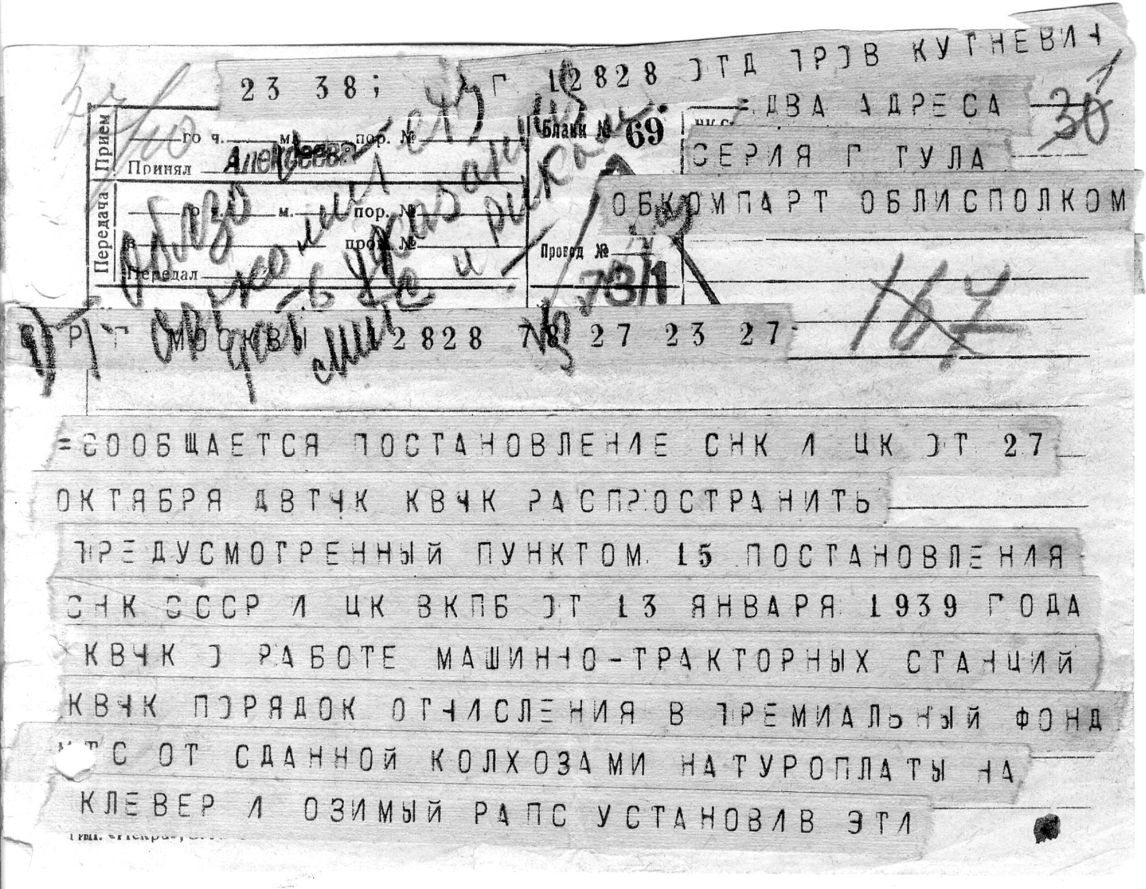 23 38;
Г 12828 ОТД ПРОВ КУТНЕВИЧ
=ДВА АДРЕСА
30
1
СЕРИЯ Г ТУЛА
ОБКОМПАРТ ОБЛИСПОЛКОМ
Прием
го ч. м. пор. №
Принял Алексеева
Бланк № 69
Передача
ч. м. пор. №
Передал
Провод №
73/1
167
МОСКВЫ 2828 78 27 23 27
=СООБЩАЕТСЯ ПОСТАНОВЛЕНИЕ СНК И ЦК ОТ 27
ОКТЯБРЯ ДВТЧК КВЧК РАСПРОСТРАНИТЬ
ПРЕДУСМОТРЕННЫЙ ПУНКТОМ 15 ПОСТАНОВЛЕНИЯ
СНК СССР И ЦК ВКПБ ОТ 13 ЯНВАРЯ 1939 ГОДА
КВЧК О РАБОТЕ МАШИННО-ТРАКТОРНЫХ СТАНЦИЙ
КВЧК ПОРЯДОК ОТЧИСЛЕНИЯ В ПРЕМИАЛЬНЫЙ ФОНД
МТС ОТ СДАННОЙ КОЛХОЗАМИ НАТУРОПЛАТЫ НА
КЛЕВЕР И ОЗИМЫЙ РАПС УСТАНОВИВ ЭТИ